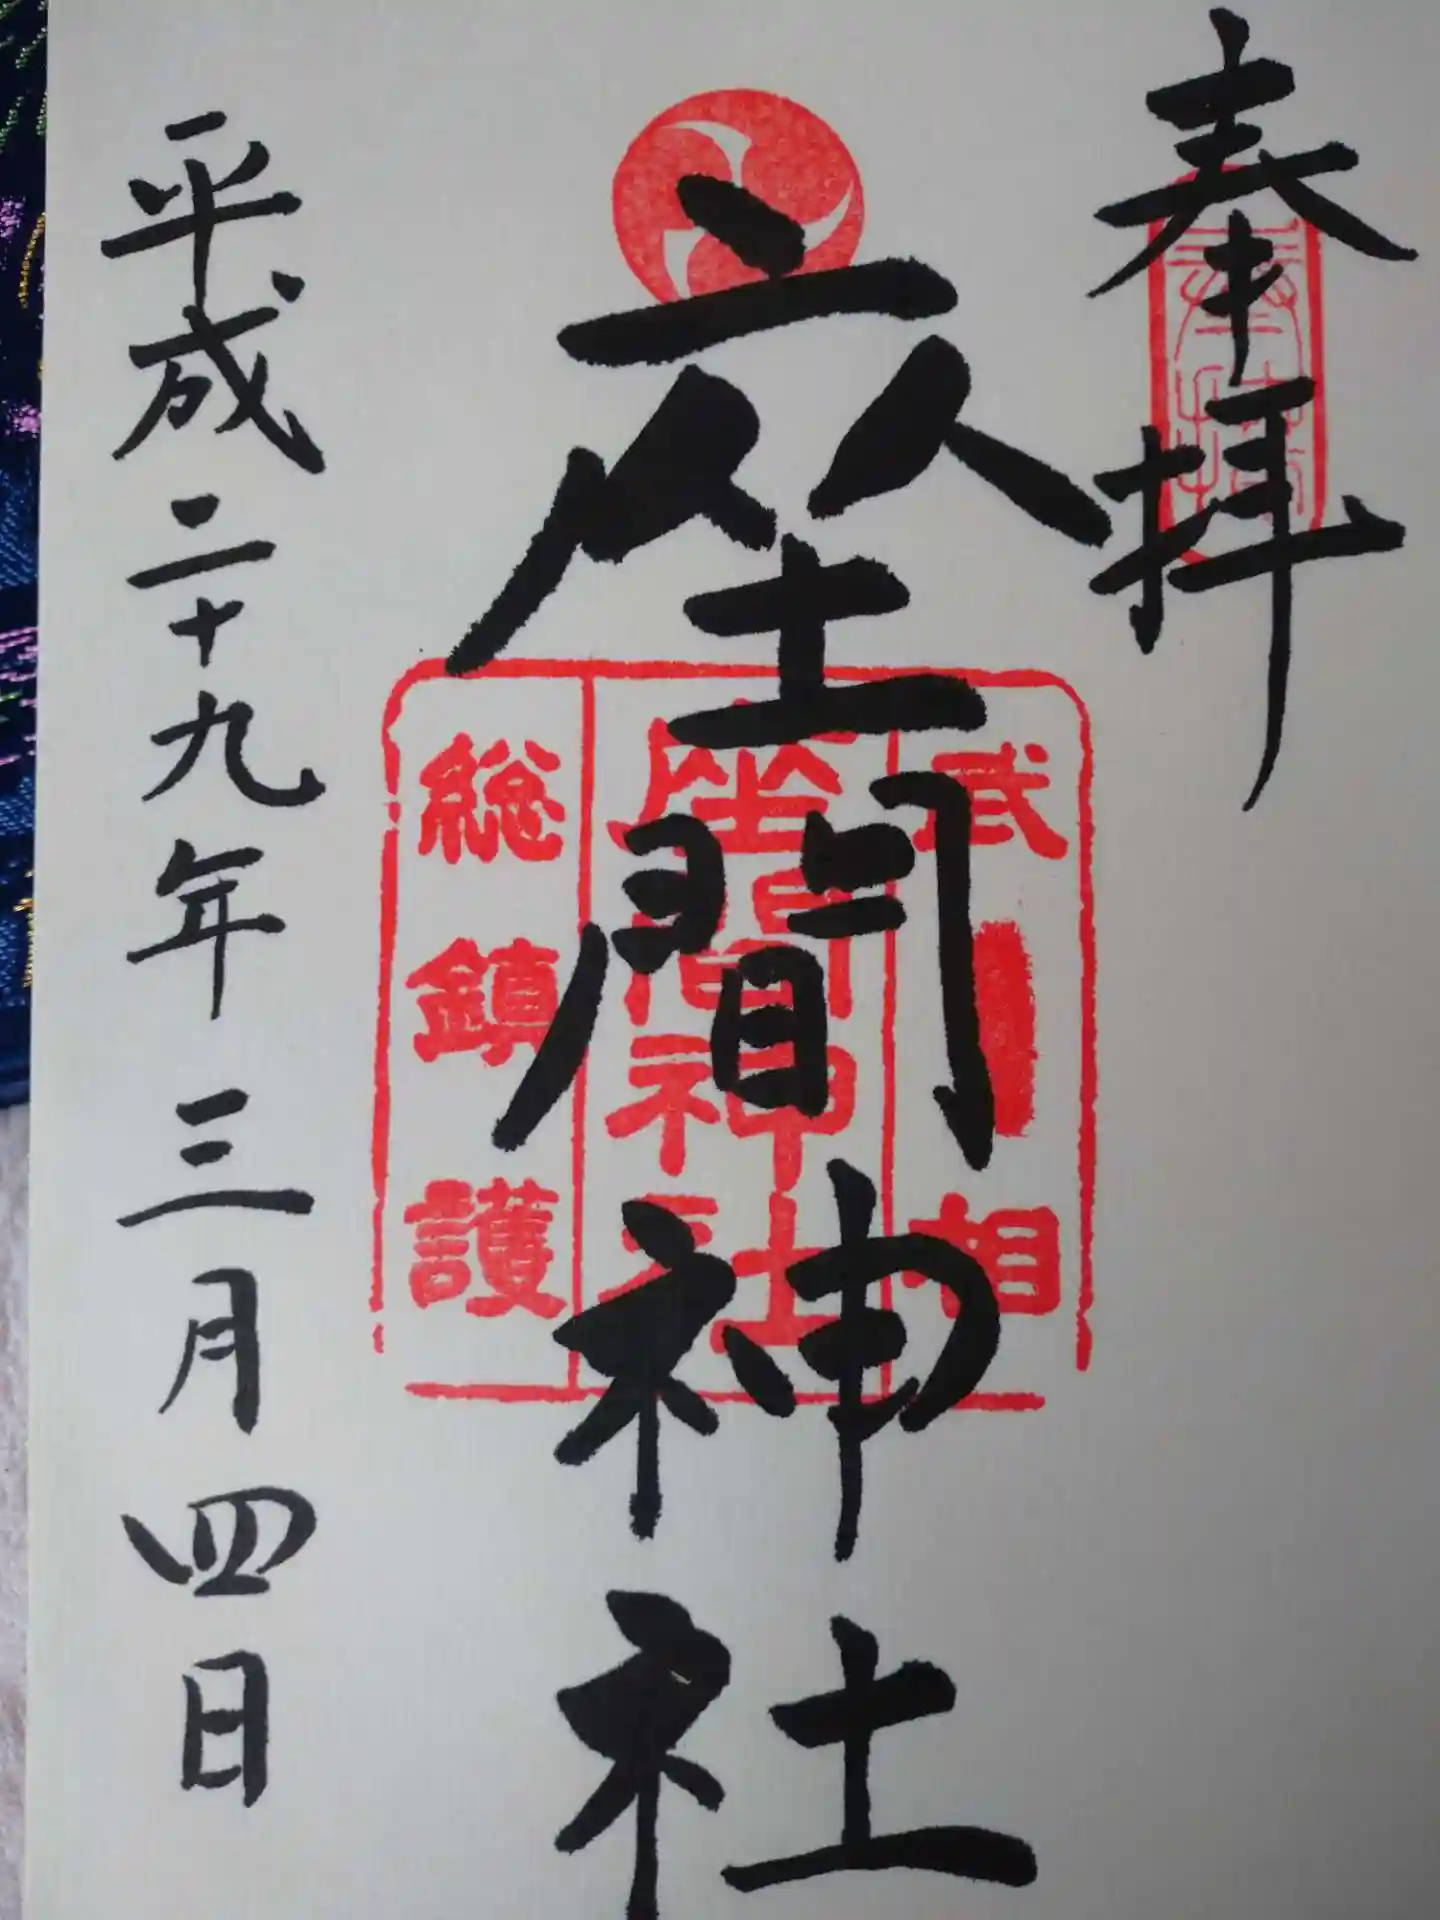 奉拝
奉拝
座間神社
武相
座間神社
総鎮護
平成二十九年三月四日